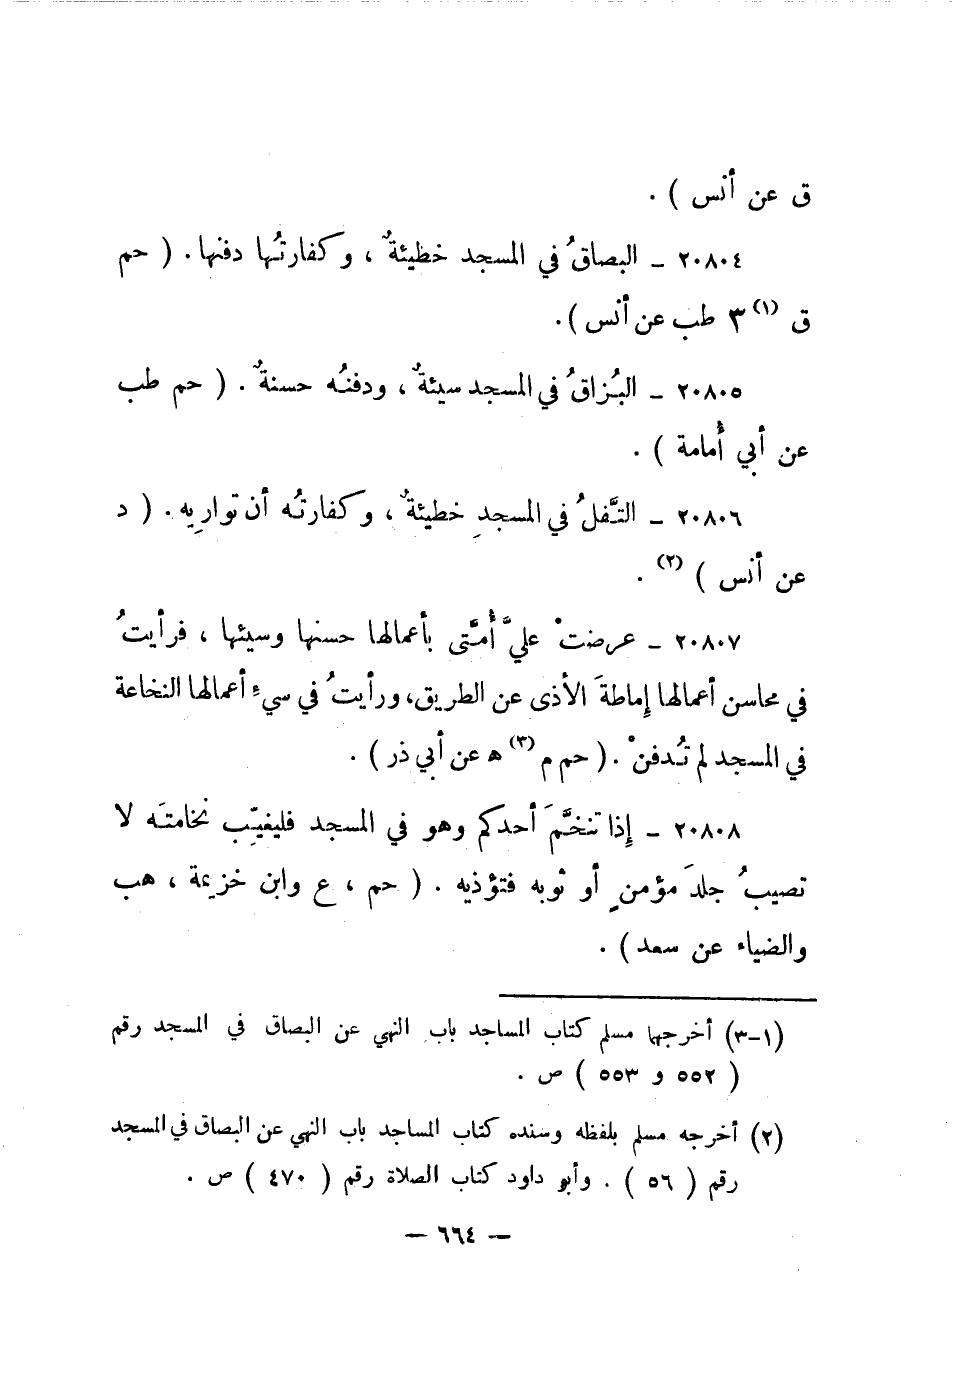 ق عن أنس ) .
٢٠٨٠٤ – البصاقُ في المسجد خطيئةٌ ، وكفارتُها دفنها . ( حم
ق (١) ٣ طب عن أنس ) .
٢٠٨٠٥ – البُزاقُ في المسجد سيئةٌ ، ودفنُه حسنةٌ . ( حم طب
عن أبي أُمامة ) .
٢٠٨٠٦ – التَّفلُ في المسجدِ خطيئةٌ ، وكفارتُه أن تواريِه . ( د
عن أنس ) (٢) .
٢٠٨٠٧ – عرضتْ عليَّ أُمتَّى بأعمالها حسنها وسيئها ، فرأيتُ
في محاسن أعمالها إِماطةَ الأذى عن الطريق، ورأيتُ في سيءِ أعمالها النخاعة
في المسجد لم تُدفنْ . ( حم م (٣) ه عن أبي ذر ) .
٢٠٨٠٨ – إِذا تنخَّمَ أحدكم وهو في المسجد فليغيِّب نخامتَه لا
تصيبُ جلدَ مؤمنٍ أو ثوبه فتؤذيه . ( حم ، ع وابن خزيمة ، هب
والضياء عن سعد ) .
(١-٣) أخرجها مسلم كتاب المساجد باب النهي عن البصاق في المسجد رقم
( ٥٥٢ و ٥٥٣ ) ص .
(٢) أخرجه مسلم بلفظه وسنده كتاب المساجد باب النهي عن البصاق في المسجد
رقم ( ٥٦ ) . وأبو داود كتاب الصلاة رقم ( ٤٧٠ ) ص .
— ٦٦٤ —